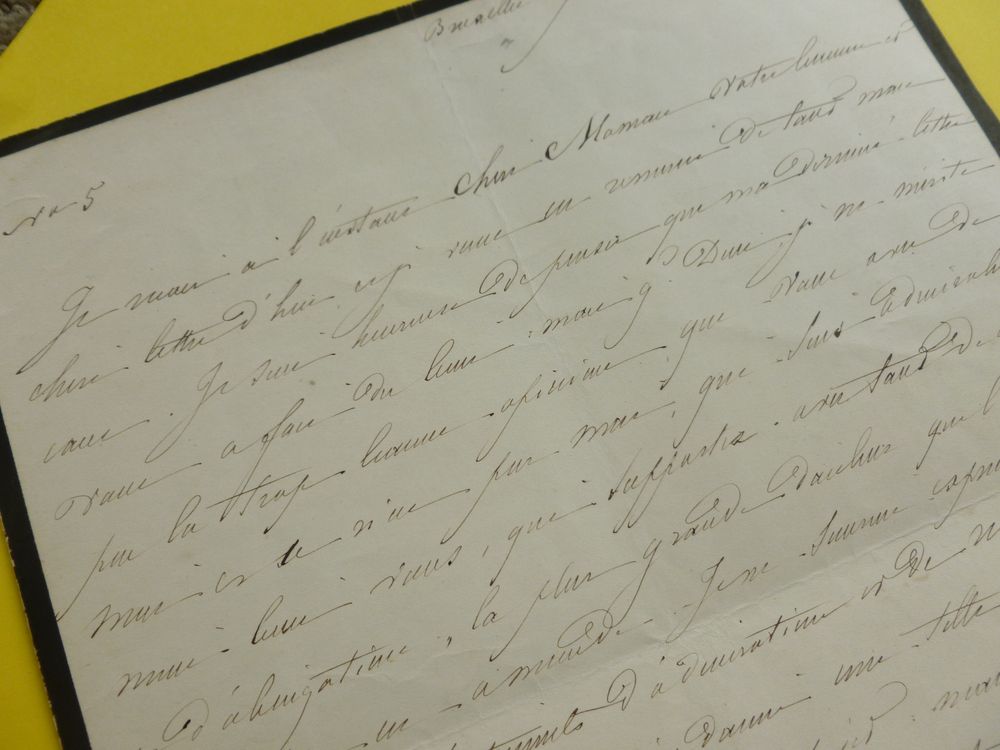 Bruxelles
No 5
Je reçois à l'instant chère Maman votre bonne et
chère lettre d'hier et vous en remercie de tout mon
cœur. Je suis heureuse de penser que ma dernière lettre
vous a fait du bien - mais Dieu, je ne mérite
pas la trop bonne opinion que vous avez de
moi et ce n'est pas moi, qui suis admirable
mais bien vous, qui supportez avec tant de
d'abnégation, la plus grande douleur que l'
au monde. Je ne saurais
d'admiration et de
donné une telle